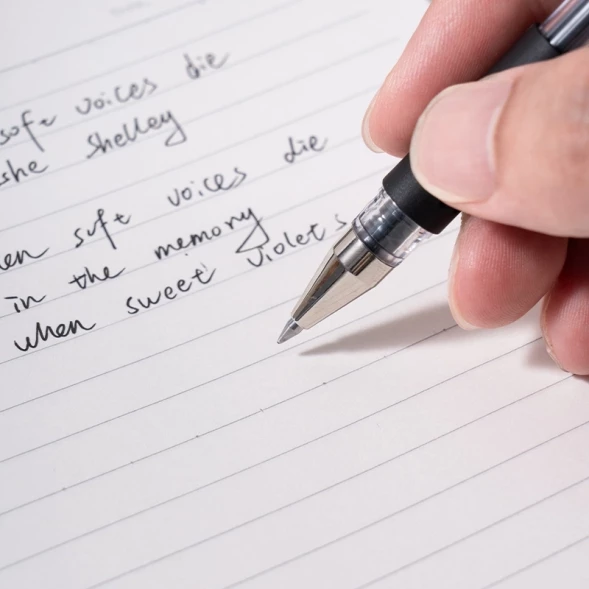 soft voices die
she shelley
en soft voices die
in the memory
when sweet violets